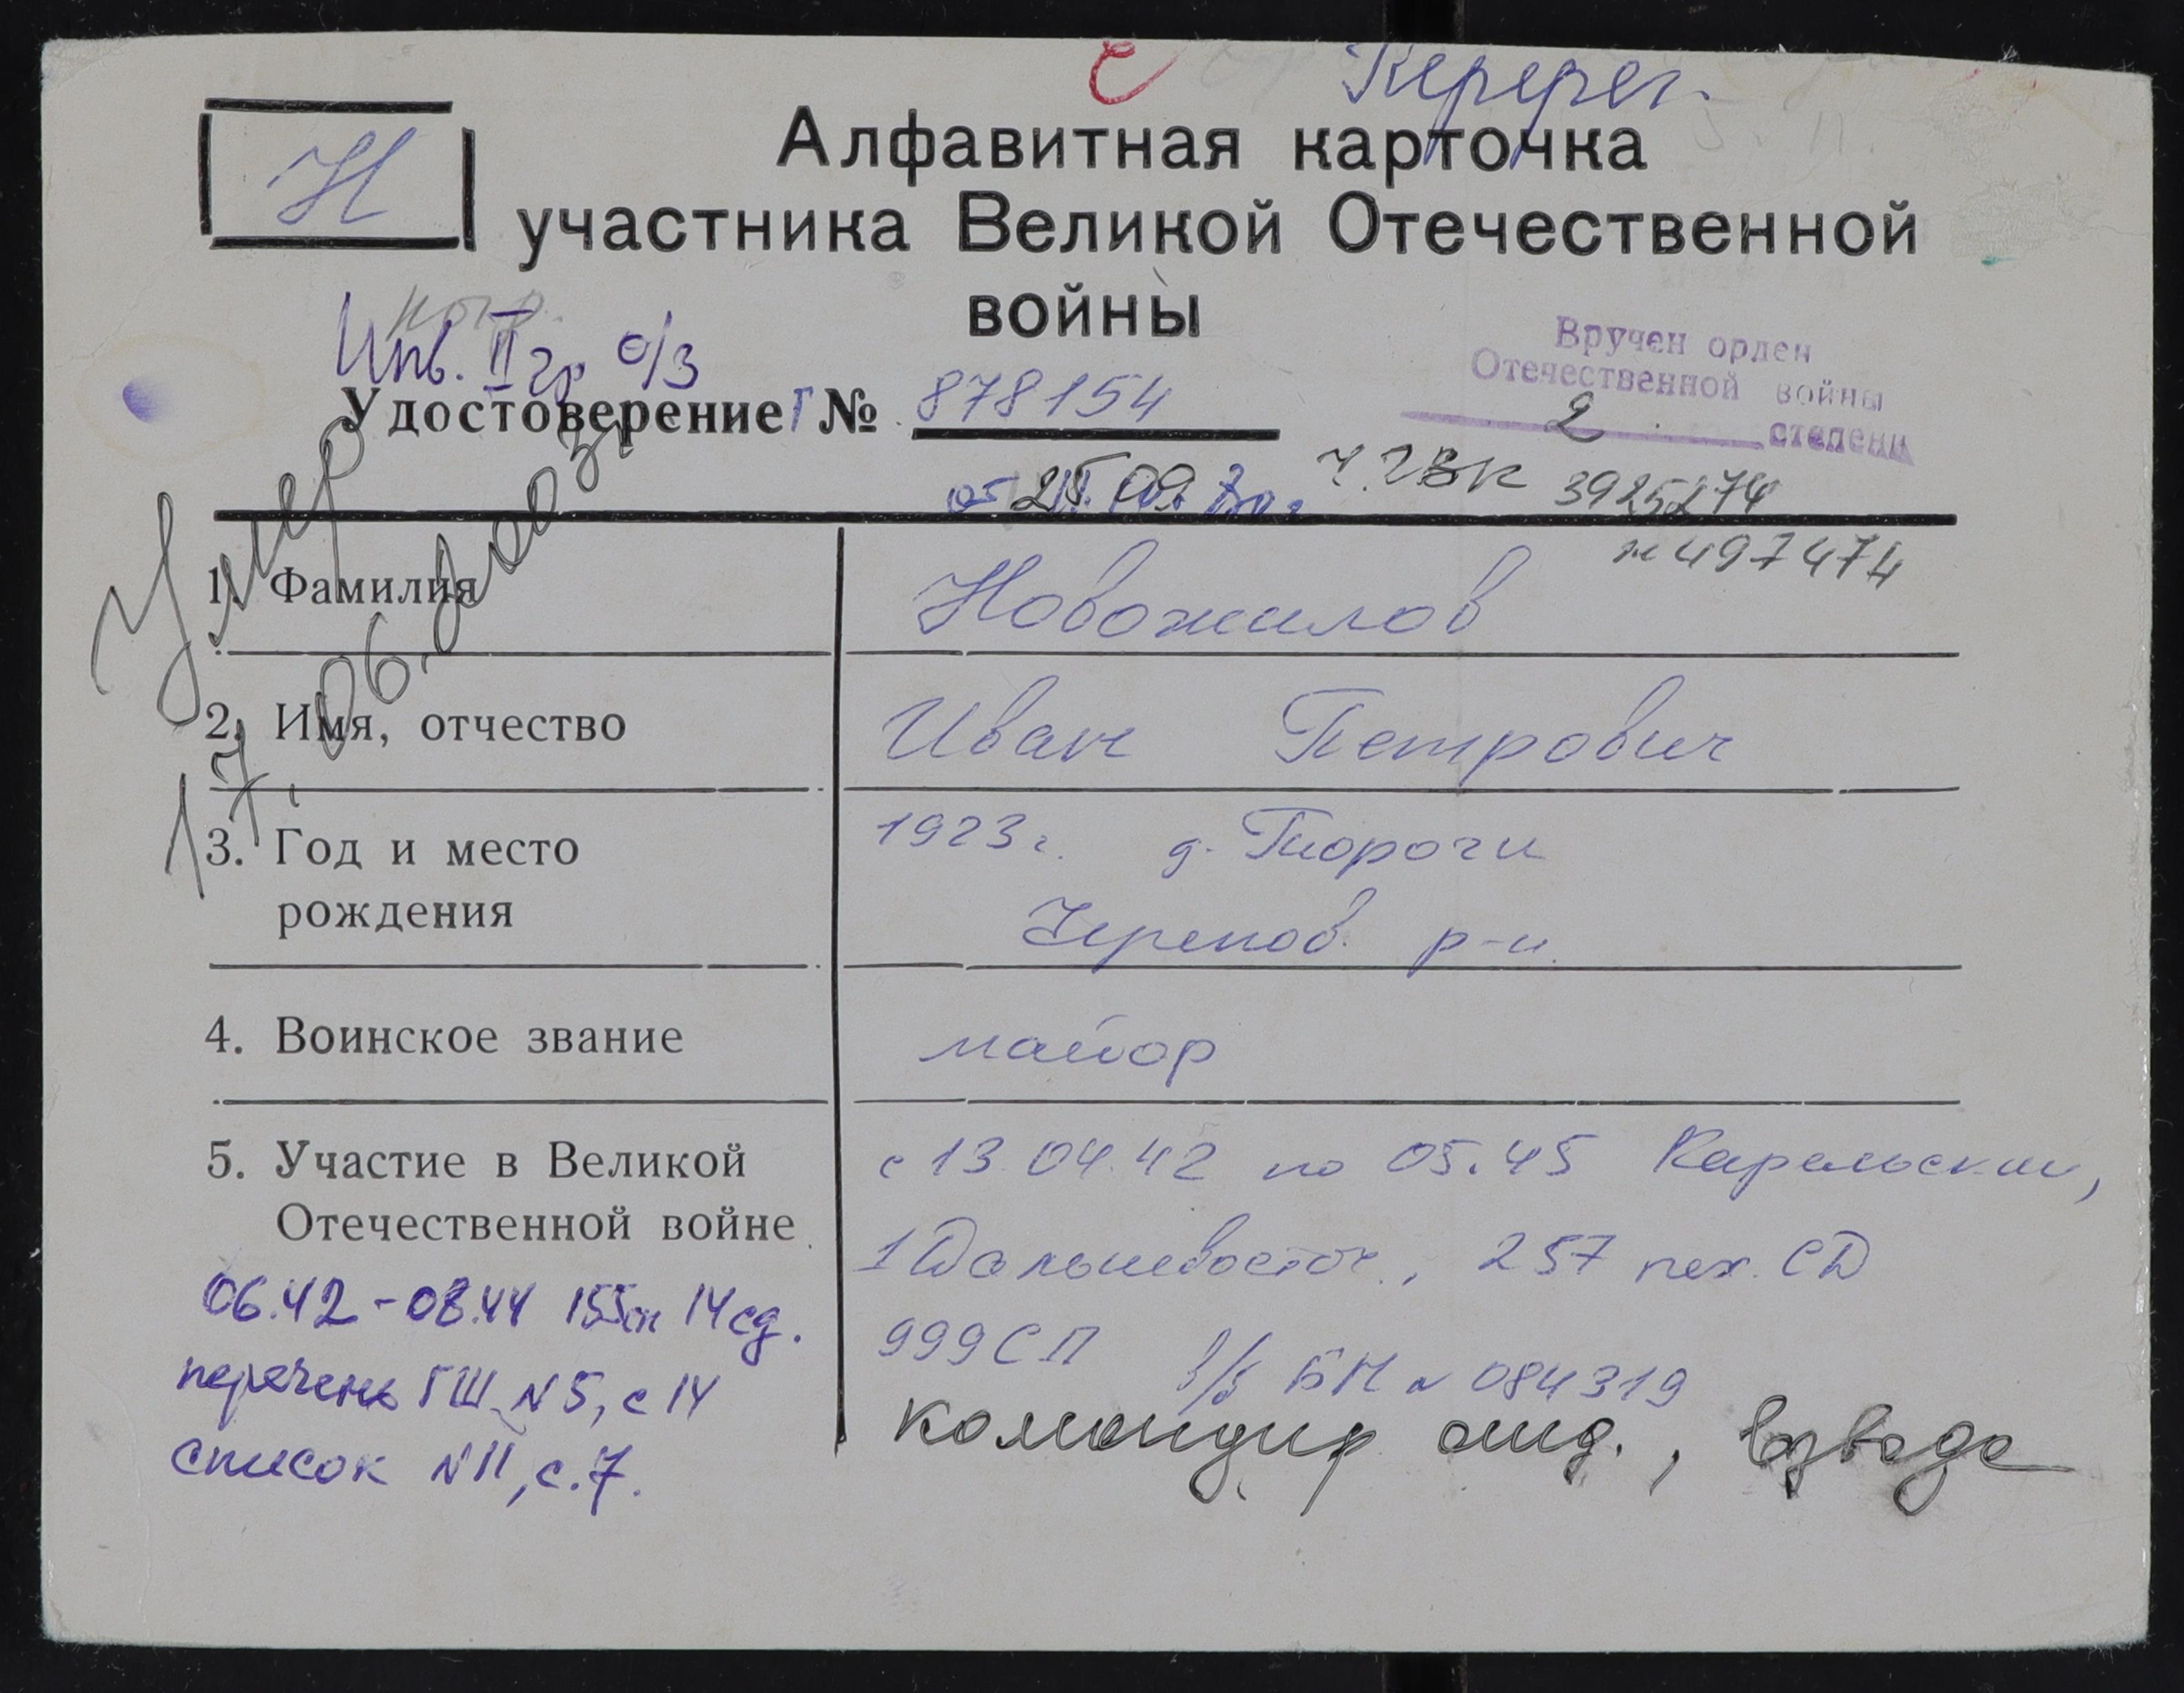 с Перерег.
Н
Алфавитная карточка
участника Великой Отечественной
войны
Инв. II гр о/з
Удостоверение Г № 878154
Вручен орден
Отечественной войны
2 степени
25.09
ч. ГВК 3925274
н 497474
Умер
17.06.2003г
1. Фамилия Новожилов
2. Имя, отчество Иван Петрович
3. Год и место 1923 г. д.
рождения Черепов. р-н.
4. Воинское звание майор
5. Участие в Великой с 13.04.42 по 05.45 Карельский,
Отечественной войне 1 Дальневосточ., 257 СД
999 СП в/б БМ № 084319
командир отд., взвода
06.42-08.44 155сп 14 сд.
перечень ГШ N5, с 14
список N11, с.7.